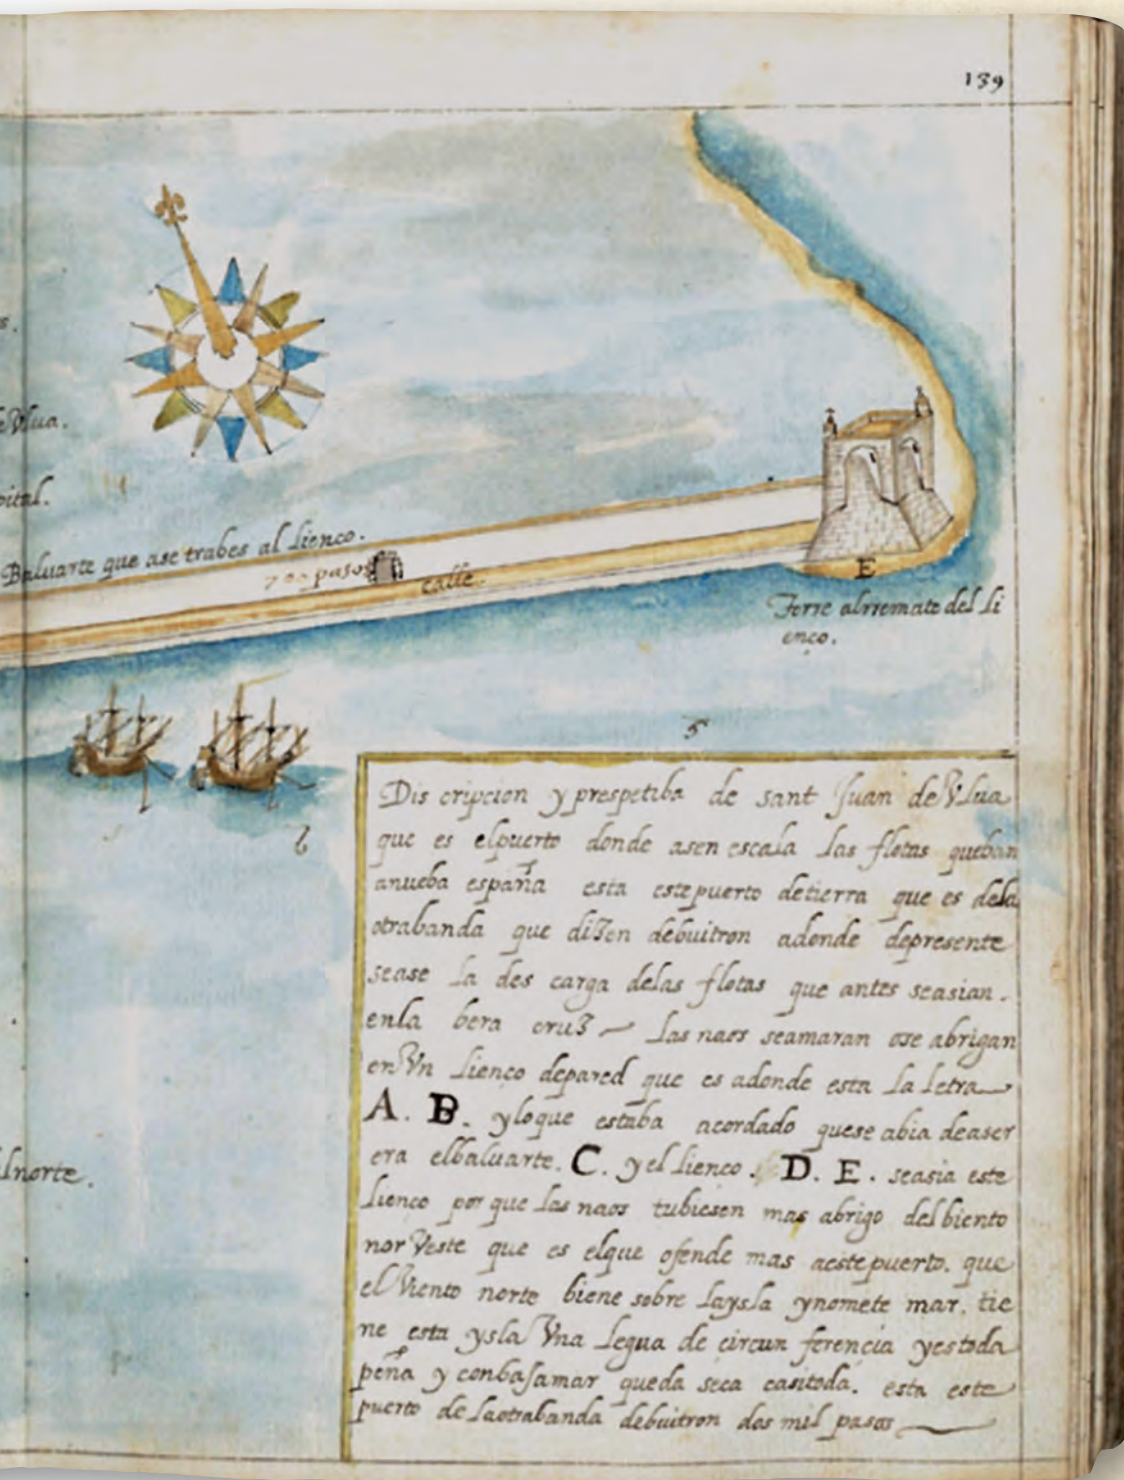 139
de Vlua.
Baluarte que ase trabes al lienco.
700 pasos
calle.
E
Torre alrremate del li
enco.
5
6
Dis cripcion y prespetiba de sant Juan de Vlua
que es elpuerto donde asen escala las flotas queban
anueba españa esta estepuerto detierra que es dela
otrabanda que disen debuitron adonde depresente
sease la des carga delas flotas que antes seasian.
enla bera crus las naos seamaran ose abrigan
en Vn lienco depared que es adonde esta la letra
A. B. yloque estaba acordado quese abia deaser
era elbaluarte. C. yel lienco. D. E. seasia este
lienco por que las naos tubiesen mas abrigo delbiento
nor Veste que es elque ofende mas aestepuerto. que
el Viento norte biene sobre laysla ynomete mar. tie
ne esta ysla Vna legua de circun ferencia yestoda
peña y conbasamar queda seca casitoda. esta este
puerto de laotrabanda debuitron dos mil pasos
lnorte.